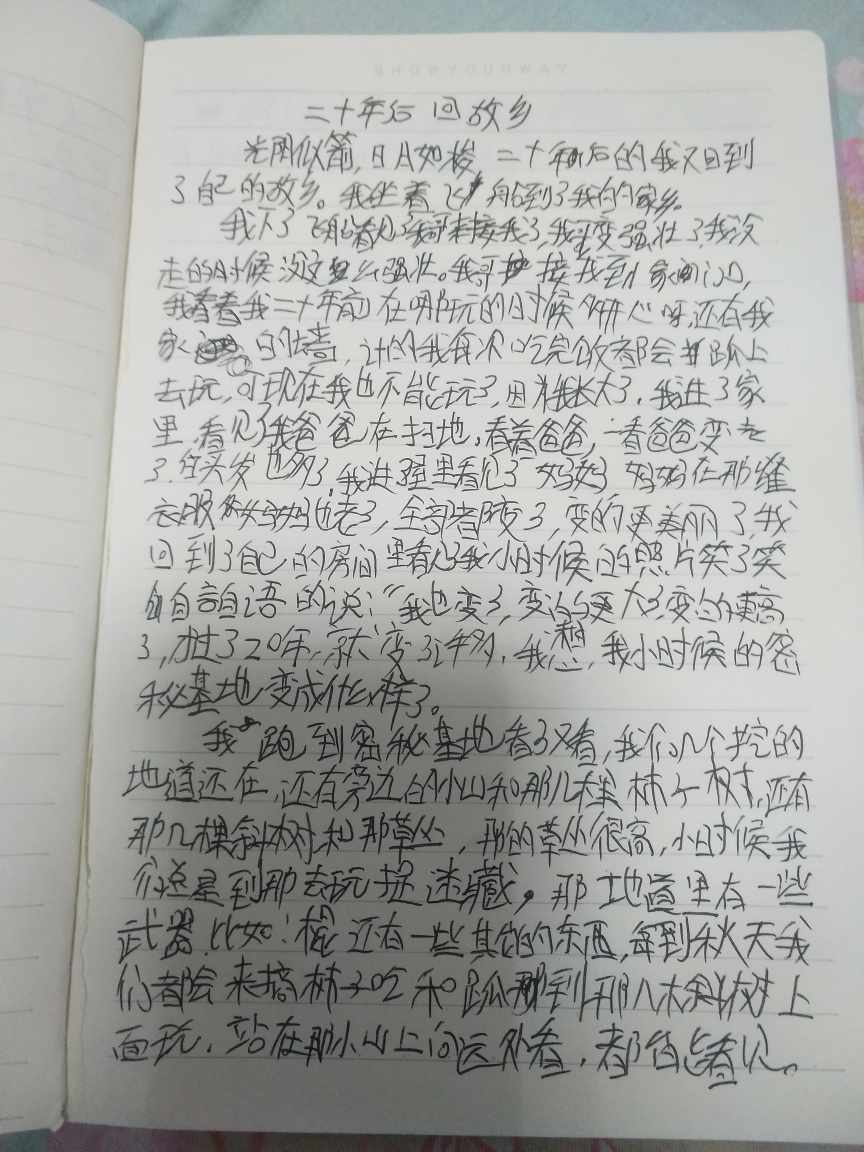 二十年后回故乡
光阴似箭,日月如梭,二十年后的我又回到
了自己的故乡。我坐着飞船到了我的家乡。
我下了飞船看见了我哥来接我了,我哥变强壮了我没
走的时候没这么强壮。我哥接我到家门口,
我看着我二十年前在哪玩的时候多开心呀,还有我
家的墙,我每次吃完饭都会跑上
去玩,可现在我也不能玩了,因为我长大了,我进了家
里,看见了我爸爸在扫地,看着爸爸,一看爸爸变老
了.白头发也多了,我进屋里看见了妈妈妈妈在那缝
衣服妈妈也老了,全部都变了,变的更美丽了,我
回到了自己的房间里看见了我小时候的照片笑了笑
自言自语的说:“我也变了,变的更大了,变的更高
了,才过了20年,就变了这么多,我想,我小时候的密
秘基地变成什么样了。
我跑到密秘基地看了又看,我们几个挖的
地道还在,还有旁边的小山和那几棵树,还有
那几棵斜树和那草丛,那的草丛很高,小时候我
们总是到那去玩捉迷藏,那地道里有一些
武器,比如:棍还有一些其他的东西,每到秋天我
们都会来摘吃和跑到那几木斜树上
面玩,站在那小山上向远处看,都能看见。